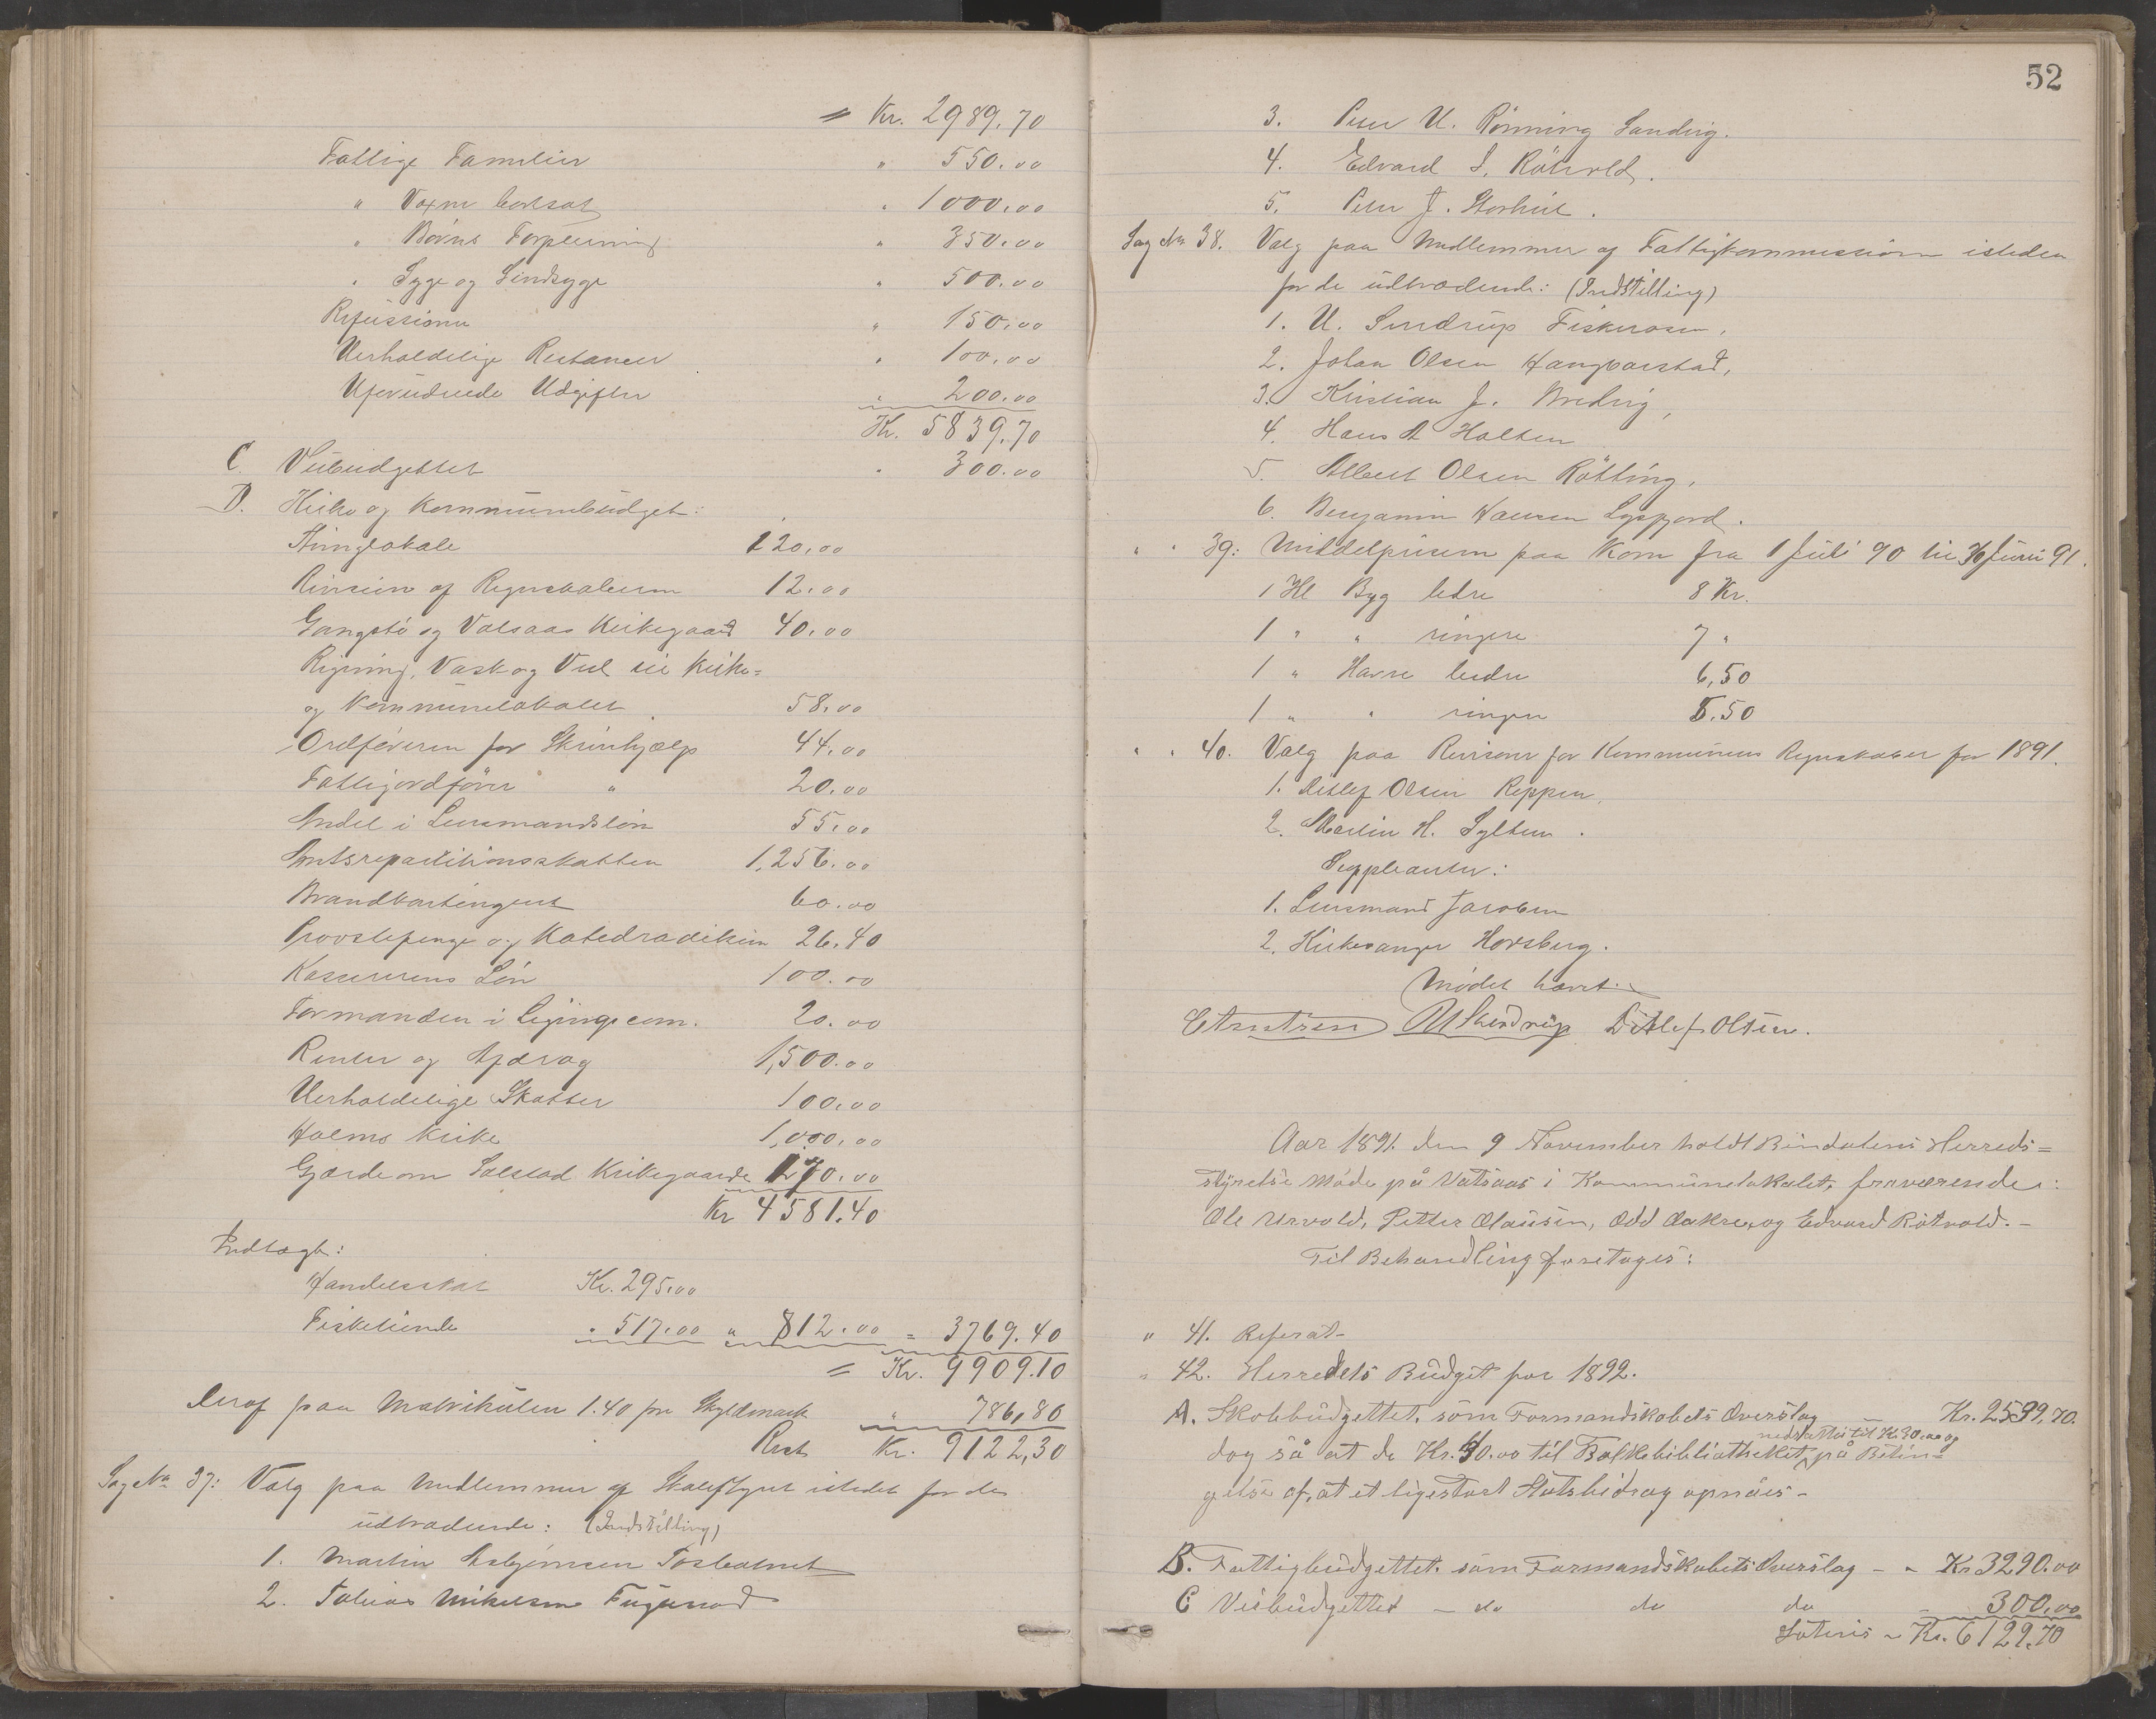 = Kr. 2989,70
Fattige Familier " 550.00
" Voxne bortsat " 1000.00
" Børns Forpleining " 350.00
" Syge og Sindsyge " 500.00
Refusioner " 150.00
Uerholdelige Restancer " 100.00
Uforudseede Udgifter " 200.00
Kr. 5839,70
C. Veibudgettet " 300.00
D. Kirke og Kommunebudget:
Thinglokale 120,00
Revision af Regnskaberne 12.00
Gangstø og Vatsaas Kirkegaard 40.00
Rigning, Vask og Ved til Kirke=
og Kommunelokalet 58.00
Ordføreren for Skrivhjælp 44.00
Fattigordfører " 20.00
Andel i Lensmandsløn 55.00
Amtsrepartitionsskatten 1,256.00
Brandkontingent 60.00
Provstepenge og Katedradikum 26.40
Kassererens Løn 100.00
Formanden i Ligningscom. 20.00
Renter og Afdrag 1,500.00
Uerholdelige Skatter 100.00
Holms Kirke 1,000.00
Gjærde om Solstad Kirkegaarde 170.00
Kr 4581.40
Indtægt:
Handelsskat Kr. 295.00
Fisketiende " 517.00 " 812.00 = 3769.40
= Kr. 9909.10
Deraf paa Matrikulen 1.40 pr Skyldmark " 786,80
Rest Kr. 9122,30
Sag No 37: Valg paa Medlemmer af Skolestyret istedet for de
udtrædende: (Indstilling)
1. Martin Asbjørnsen Tosbotnet
2. Tobias Mikelsen Fuglstad
52
3. Peter U. Rønning Sandvig.
4. Edvard S. Røtvold.
5. Peter J. Storhut.
Sag No 38. Valg paa Medlemmer af Fattigkommissionen isteden
for de udtrædende: (Indstilling)
1. U. Sverdrup Fiskerosen.
2. Johan Olsen Hangvarstad,
3. Kristian J. Bredvig,
4. Hans A Holten
5. Albert Olsen Røtting,
6. Benjamin Hansen Lysfjord.
" " 39: Middelprisen paa Korn fra 1 Juli 90 til 30 Juni 91.
1 Hl Byg bedre 8 Kr.
1 " " ringere 7 "
1 " Havre bedre 6,50
1 " " ringere 5.50
" " 40. Valg paa Revisorer for Kommunens Regnskaber for 1891.
1. Ditlef Olsen Reppen,
2. Martin H. Sylten.
Suppleanter:
1. Lensmand Jacobsen
2. Kirkesanger Horsberg.
Mødet hævet.
U Sverdrup Ditlef Olsen.
Aar 1891. den 9 November holdt Bindalens Herreds=
styrelse Møde på Vatsaas i Kommunelokalet, fraværende:
Ole Urvold, Petter Olausen, Odd Aakre, og Edvard Røtvold. -
Til Behandling foretages:
" 41. Referat -
" 42. Herredets Budget for 1892.
A. Skolebudgettet, som Formandskabets Overslag Kr. 2539,70.
nedsættes til Kr 30.00 og
dog så at de Kr. 40.00 til Folkebibliotheket på Betin=
gelse af, at et ligestort Statsbidrag opnåes -
B. Fattigbudgettet som Formandskabets Overslag - " Kr 3290.00
C Veibudgettet - do do do - 300,00
Lateris - Kr. 6129.70